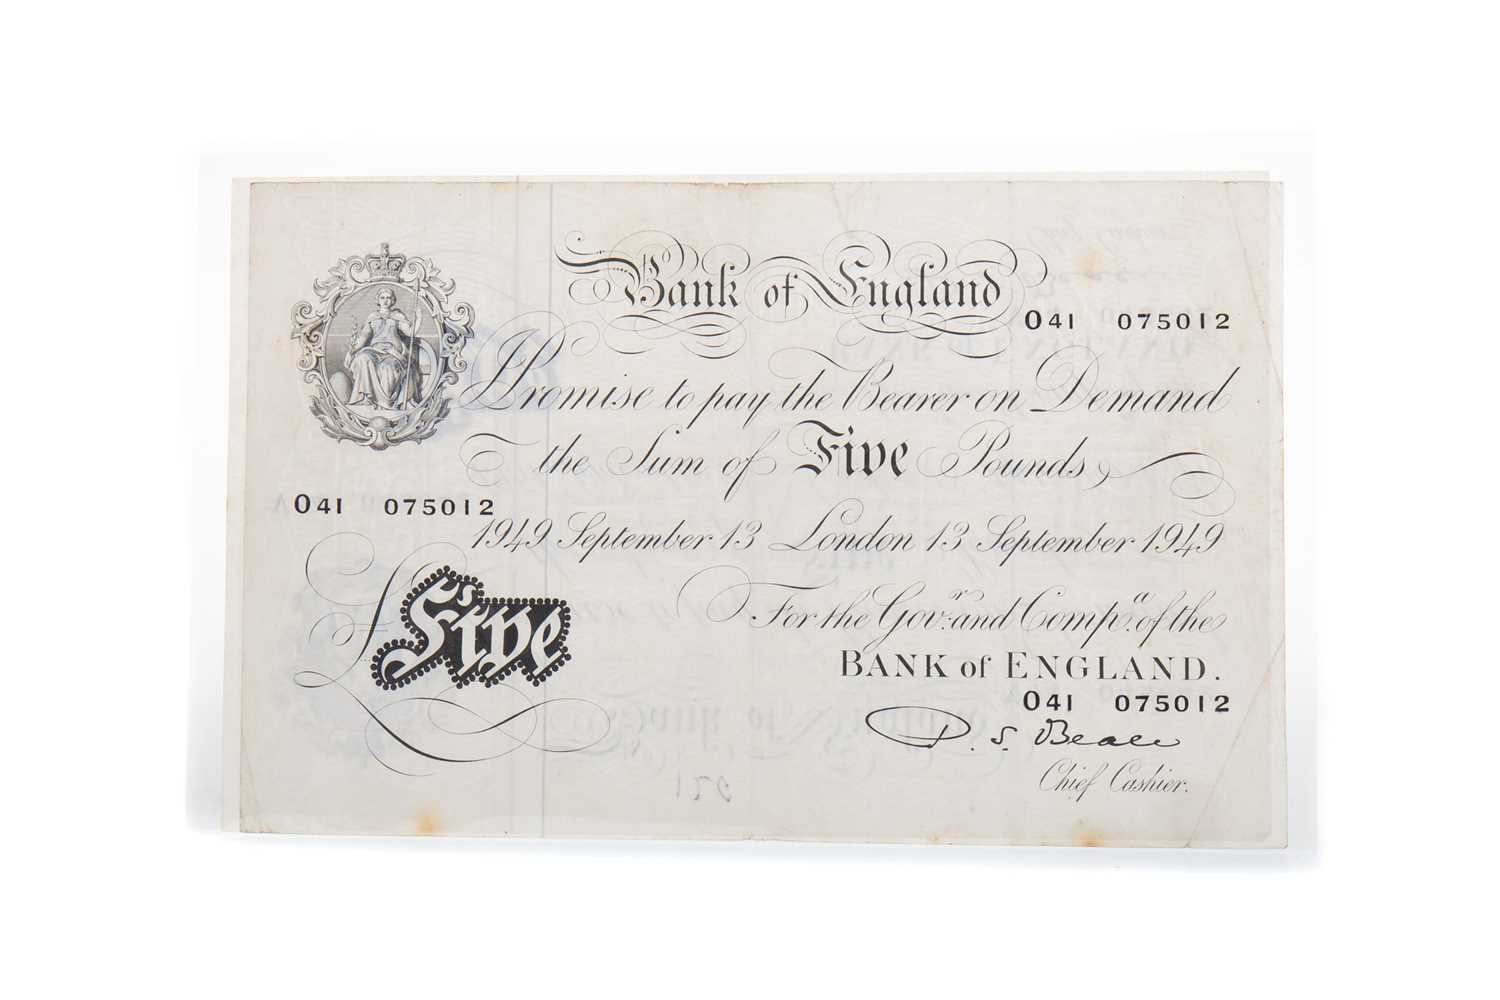 Bank of England
O41 075012
I Promise to pay the Bearer on Demand
the Sum of Five Pounds
O41 075012
1949 September 13 London 13 September 1949
£ Five
For the Gov.r and Comp.a of the
BANK of ENGLAND.
O41 075012
P. S. Beale
Chief Cashier.